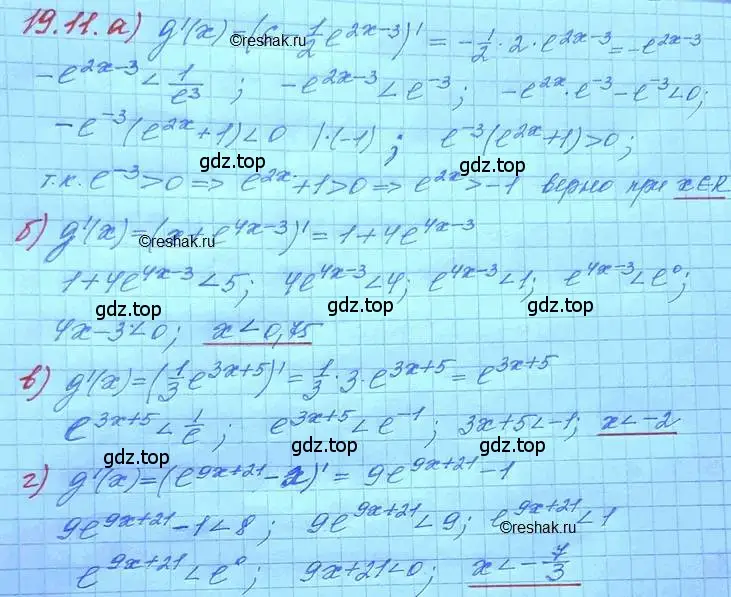 19.11. а) g'(x)=(6-1/2 e^(2x-3))' = -1/2 · 2 · e^(2x-3) = -e^(2x-3)
©reshak.ru
-e^(2x-3) < 1/e^3 ; -e^(2x-3) < e^(-3) ; -e^(2x) · e^(-3) - e^(-3) < 0;
-e^(-3)(e^(2x)+1) < 0 |·(-1) ; e^(-3)(e^(2x)+1) > 0;
gdz.top gdz.top
т.к. e^(-3) > 0 => e^(2x)+1 > 0 => e^(2x) > -1 верно при x∈R
б) g'(x)=(x+e^(4x-3))' = 1+4e^(4x-3)
©reshak.ru
1+4e^(4x-3) < 5; 4e^(4x-3) < 4; e^(4x-3) < 1; e^(4x-3) < e^0;
gdz.top gdz.top gdz.top
4x-3<0; x<0,75
в) g'(x)=(1/3 e^(3x+5))' = 1/3 · 3 · e^(3x+5) = e^(3x+5)
e^(3x+5) < 1/e ; e^(3x+5) < e^(-1) ; 3x+5<-1; x<-2
gdz.top gdz.top gdz.top
г) g'(x)=(e^(9x+21) - x)' = 9e^(9x+21) - 1
9e^(9x+21) - 1 < 8 ; 9e^(9x+21) < 9; e^(9x+21) < 1
©reshak.ru
gdz.top gdz.top
e^(9x+21) < e^0; 9x+21<0; x < -7/3